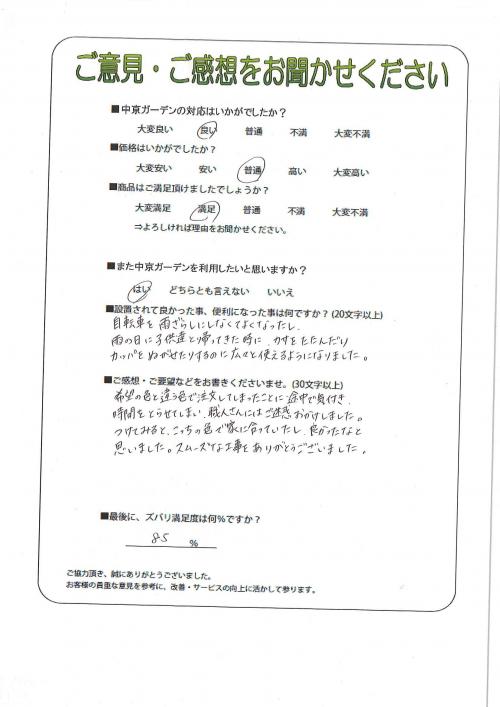 ご意見・ご感想をお聞かせください
■中京ガーデンの対応はいかがでしたか？
大変良い 良い 普通 不満 大変不満
■価格はいかがでしたか？
大変安い 安い 普通 高い 大変高い
■商品はご満足頂けましたでしょうか？
大変満足 満足 普通 不満 大変不満
⇒よろしければ理由をお聞かせください。
■また中京ガーデンを利用したいと思いますか？
はい どちらとも言えない いいえ
■設置されて良かった事、便利になった事は何ですか？(20文字以上)
自転車を雨ざらしにしなくてよくなったし、
雨の日に子供達と帰ってきた時に、カサをたたんだり
カッパをぬがせたりするのに広々と使えるようになりました。
■ご感想・ご要望などをお書きくださいませ。(30文字以上)
希望の色と違う色で注文してしまったことに途中で気付き、
時間をとらせてしまい、職人さんにはご迷惑おかけしました。
つけてみると、こっちの色で家に合っていたし、良かったなと
思いました。スムーズな工事をありがとうございました。
■最後に、ズバリ満足度は何%ですか？
85 %
ご協力頂き、誠にありがとうございました。
お客様の貴重な意見を参考に、改善・サービスの向上に活かして参ります。